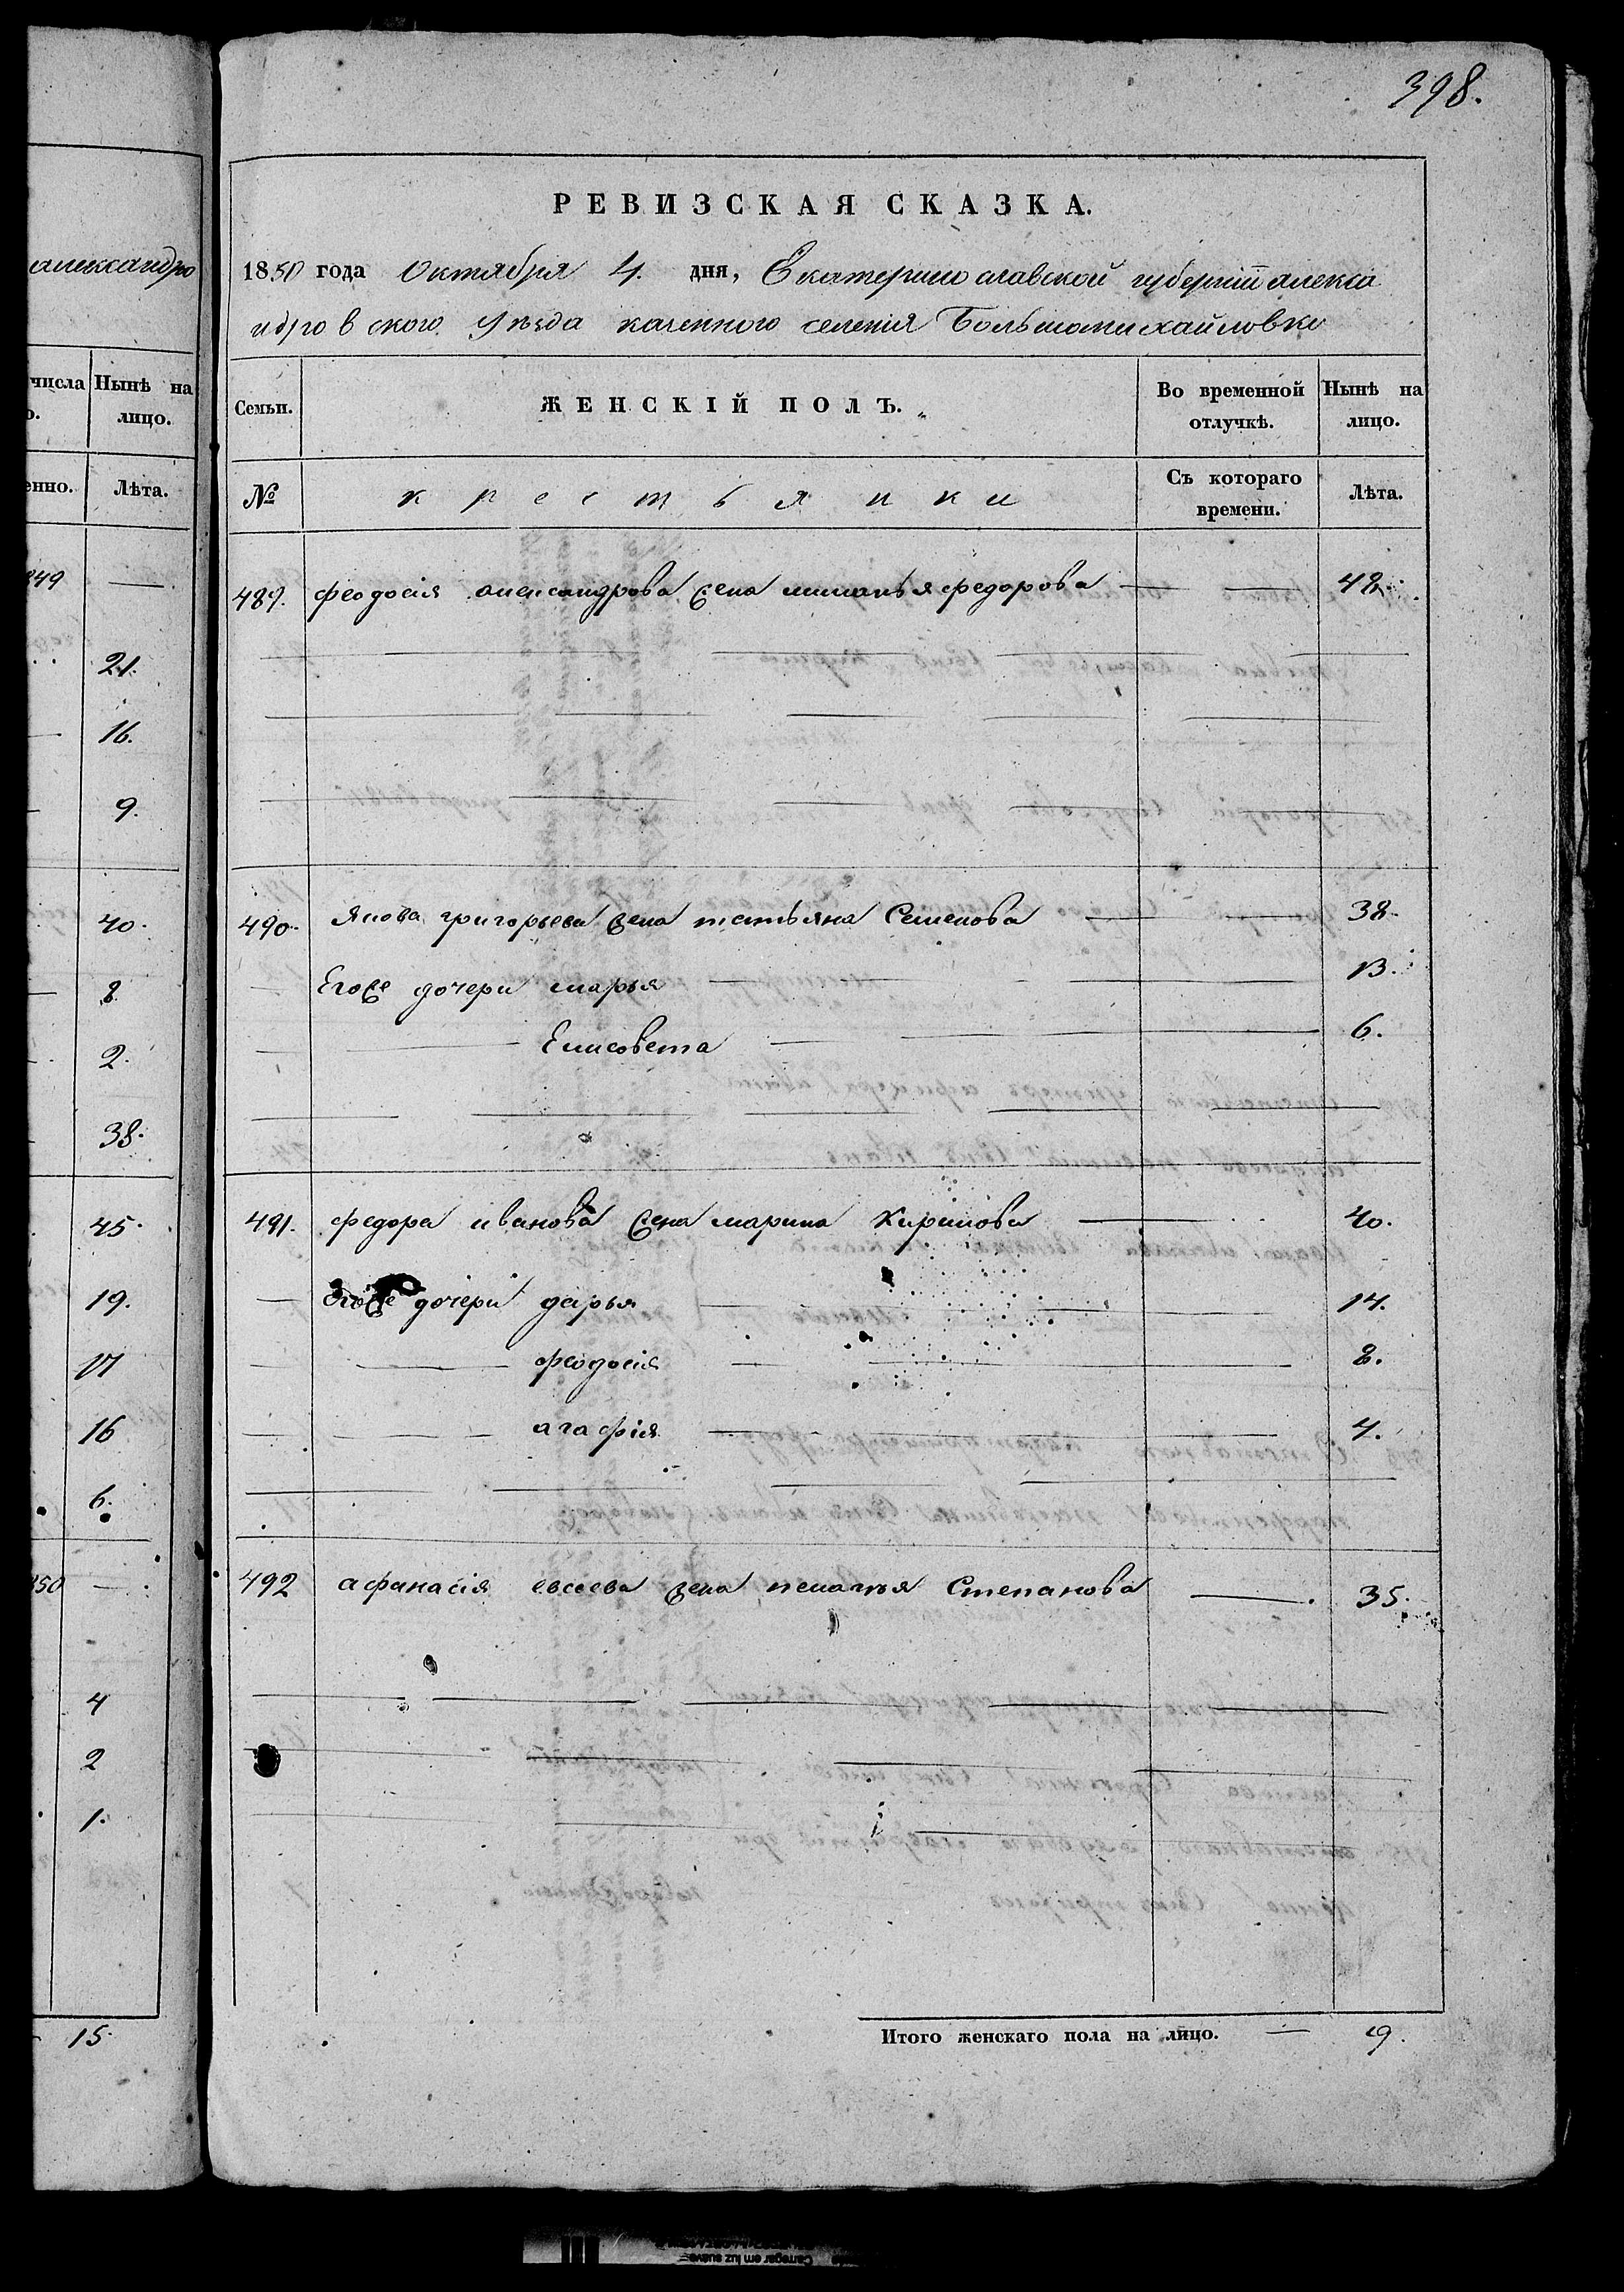 398.
александро
РЕВИЗСКАЯ СКАЗКА.
1850 года Октября 4. дня, Екатеринославской губернии алекса
ндровского уезда казенного селения Большомихайловко
числа
Нынѣ на лицо.
Семьи.
ЖЕНСКІЙ ПОЛЪ.
Во временной отлучкѣ.
Нынѣ на лицо.
енно.
Лѣта.
№
крестьянки
Съ котораго времени.
Лѣта.
849 —
489. феодосия александрова жена федорова — — 48.
21.
16.
9.
40.
490. Якова григорьева жена татьяна Семенова — — 38.
8
Егоже дочери марья — 13.
2.
Елисовета — 6.
38.
45.
491. федора иванова жена марина Кирилова — 40.
19.
Егоже дочери дарья — 14.
17
феодосія — 8.
16
агафія — 4.
6.
850 —
492 афанасія евсеева жена пелагея Степанова — 35.
4
2
1.
15.
Итого женскаго пола на лицо. — 9.